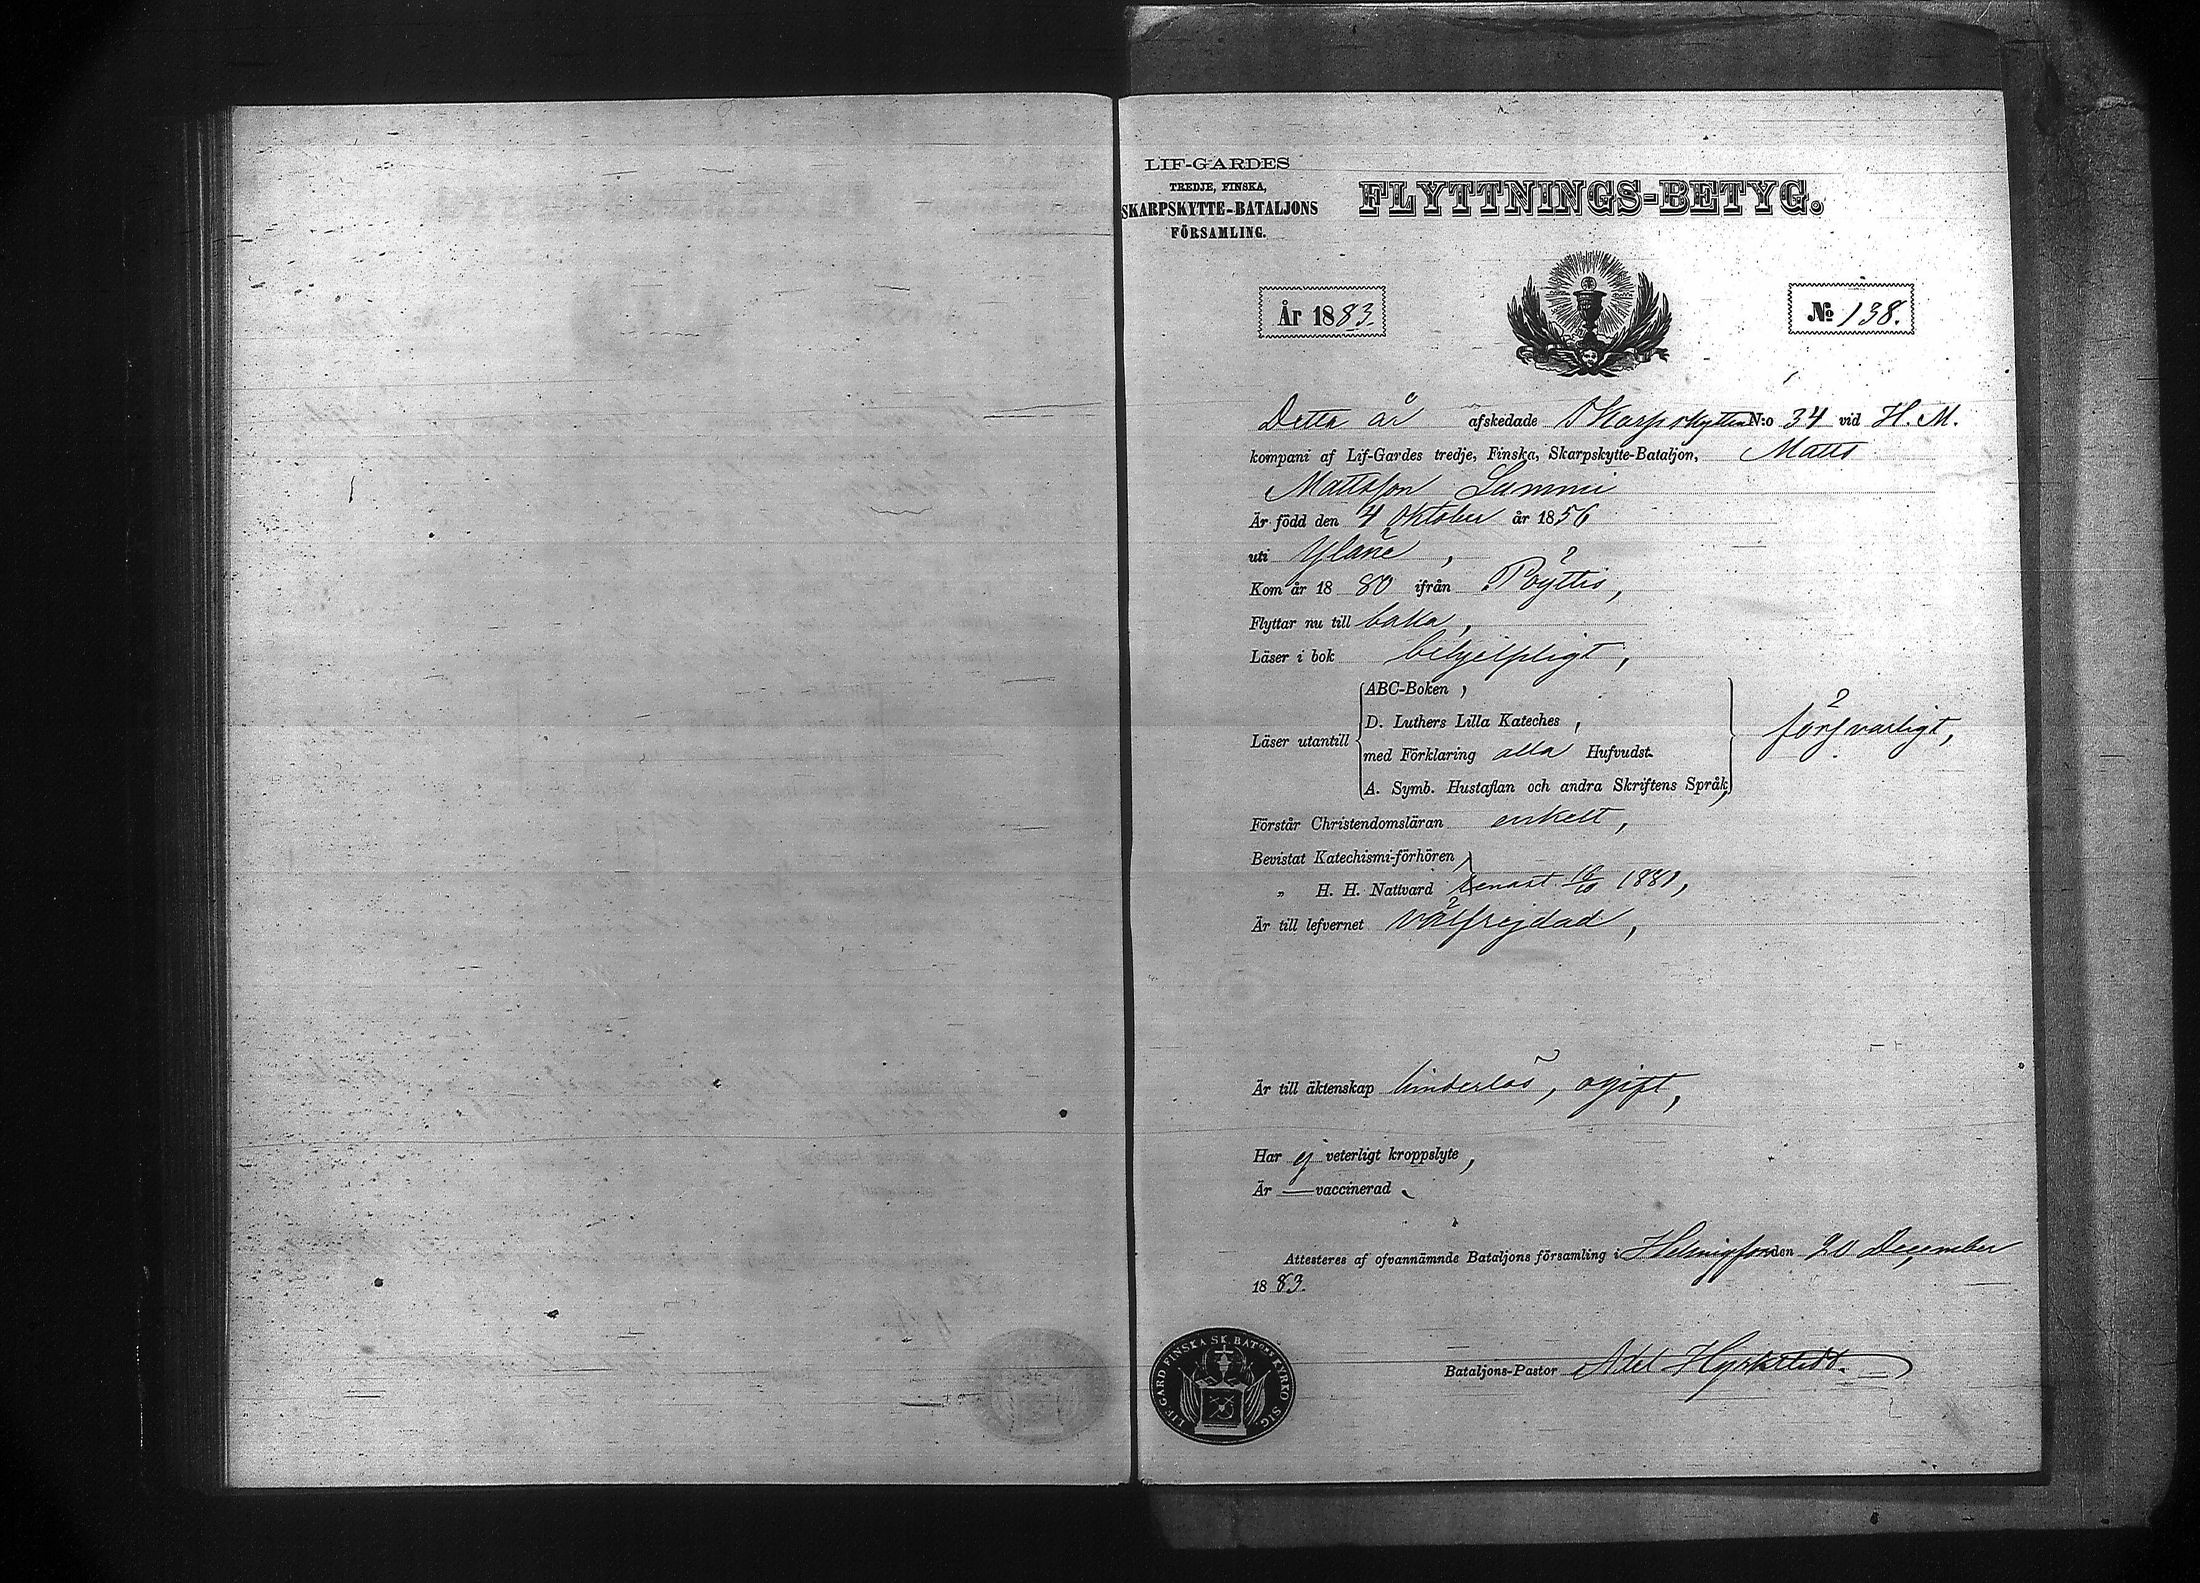 LIF-GARDES
TREDJE, FINSKA,
SKARPSKYTTE-BATALJONS
FÖRSAMLING.
FLYTTNINGS-BETYG.
År 1883.
No 138.
Detta år afskedade Skarpskytten N:o 34 vid H. M.
kompani af Lif-Gardes tredje, Finska, Skarpskytte-Bataljon, Matts
Mattsson Lummi
Är född den 4 Oktober år 1856
uti Yläne,
Kom år 1880 ifrån Pöyttis,
Flyttar nu till baka,
Läser i bok behjelpligt,
Läser utantill
ABC-Boken,
D. Luthers Lilla Kateches,
med Förklaring alla Hufvudst.
A. Symb. Hustaflan och andra Skriftens Språk,
försvarligt,
Förstår Christendomsläran enkelt,
Bevistat Katechismi-förhören
„ H. H. Nattvard senast 16/10 1881,
Är till lefvernet välfrejdad,
Är till äktenskap hinderlös, ogift,
Har ej veterligt kroppslyte,
Är — vaccinerad.
Attesteres af ofvannämnde Bataljons församling i Helsingfors den 20 December
1883.
LIF-GARD FINSKA SK. BAT:ONS KYRKO SIG.
Bataljons-Pastor Adel Hyrkstedt.